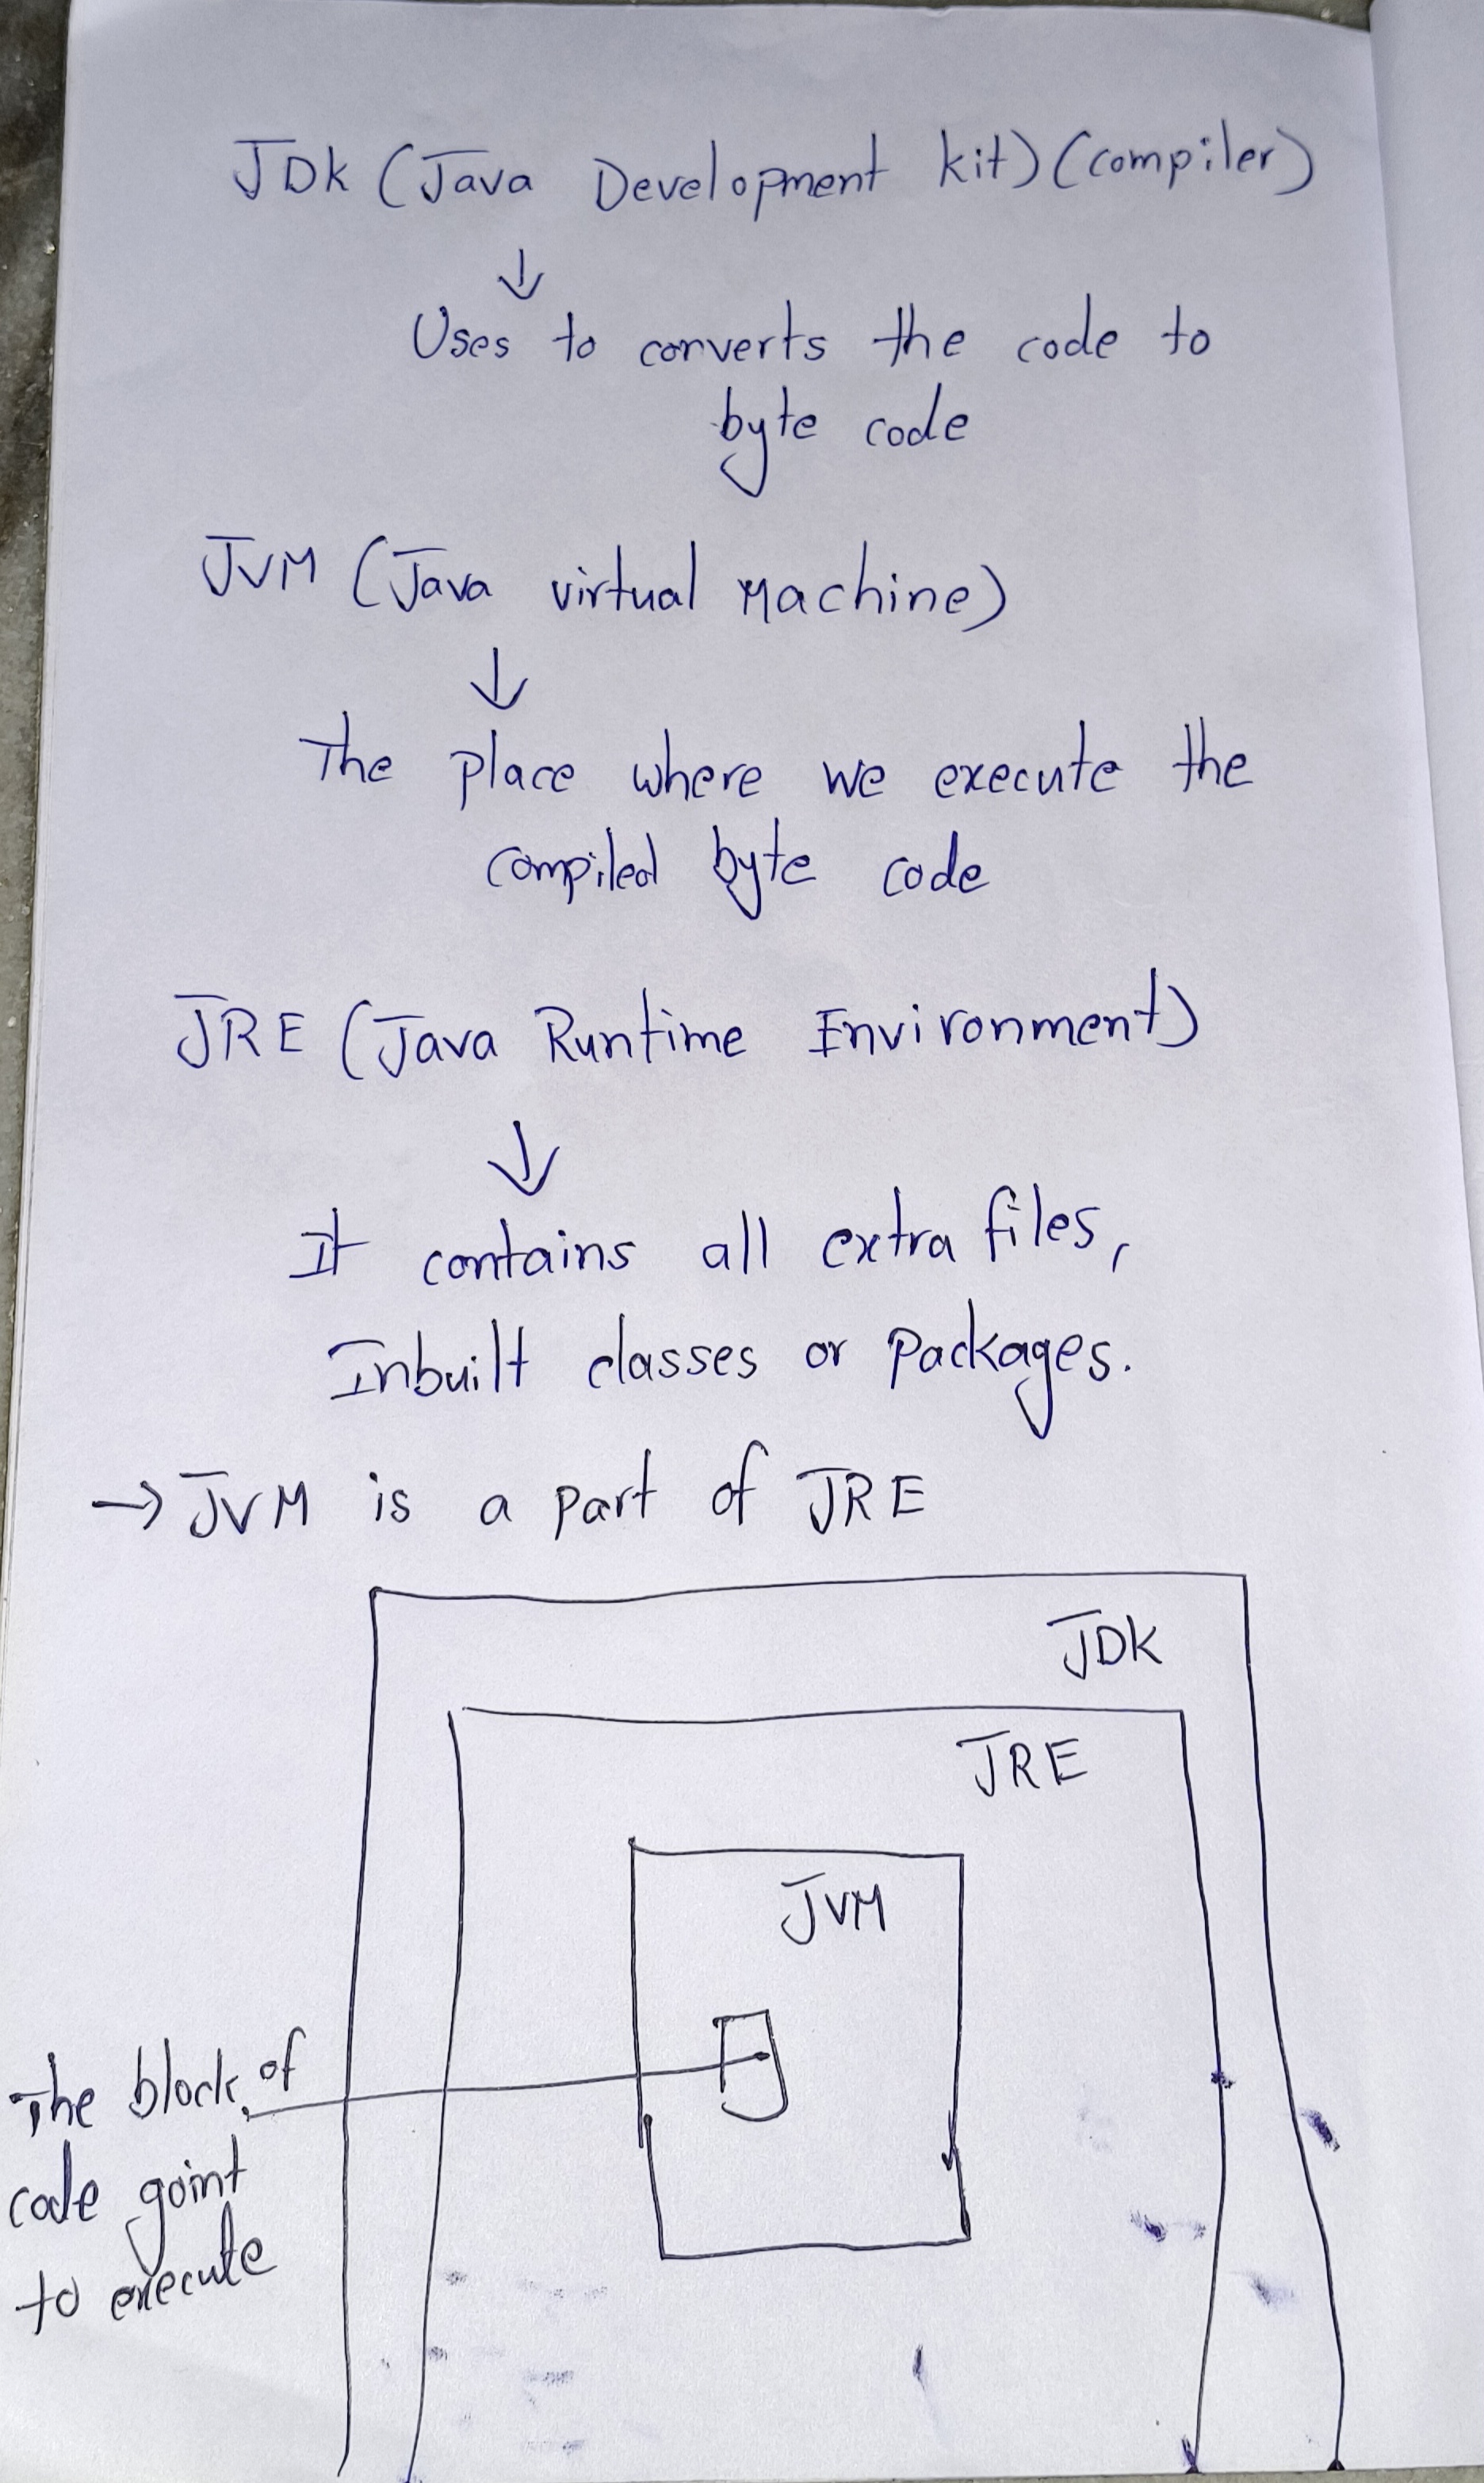 JDK (Java Development kit) (compiler)
↓
Uses to converts the code to
byte code
JVM (Java virtual Machine)
↓
The place where we execute the
compiled byte code
JRE (Java Runtime Environment)
↓
It contains all extra files,
Inbuilt classes or packages.
→ JVM is a part of JRE
JDK
JRE
JVM
The block of
code goint
to execute